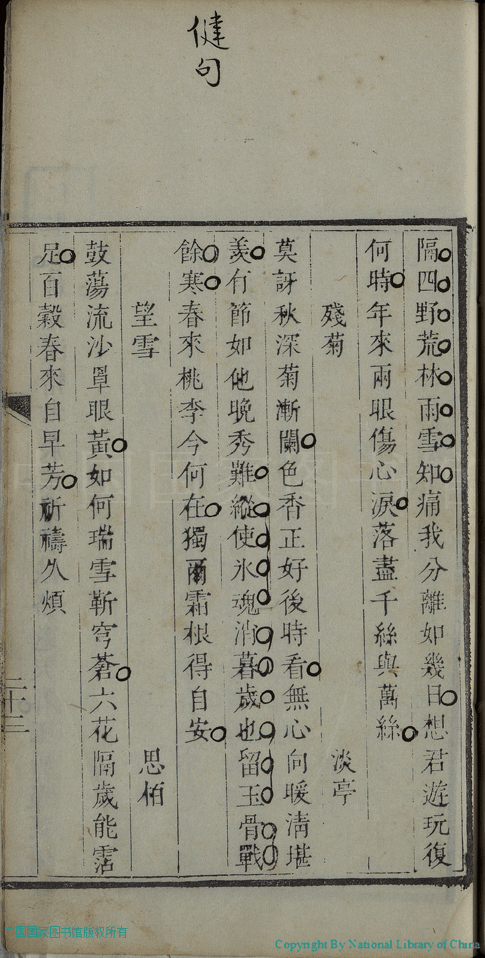 健句
隔四野荒林雨雪知痛我分離如幾日想君遊玩復
何時年來兩眼傷心淚落盡千絲與萬絲
殘菊 淡亭
莫訝秋深菊漸闌色香正好後時看無心向暖淸堪
羨有節如他晚秀難縱使氷魂消暮歲也留玉骨戰
餘寒春來桃李今何在獨爾霜根得自安
望雪 思佰
鼓蕩流沙單眼黃如何瑞雪靳穹蒼六花隔歲能霑
足百穀春來自早芳祈禱久煩
二十三
中國國家图书馆版权所有
Copyright By National Library of China